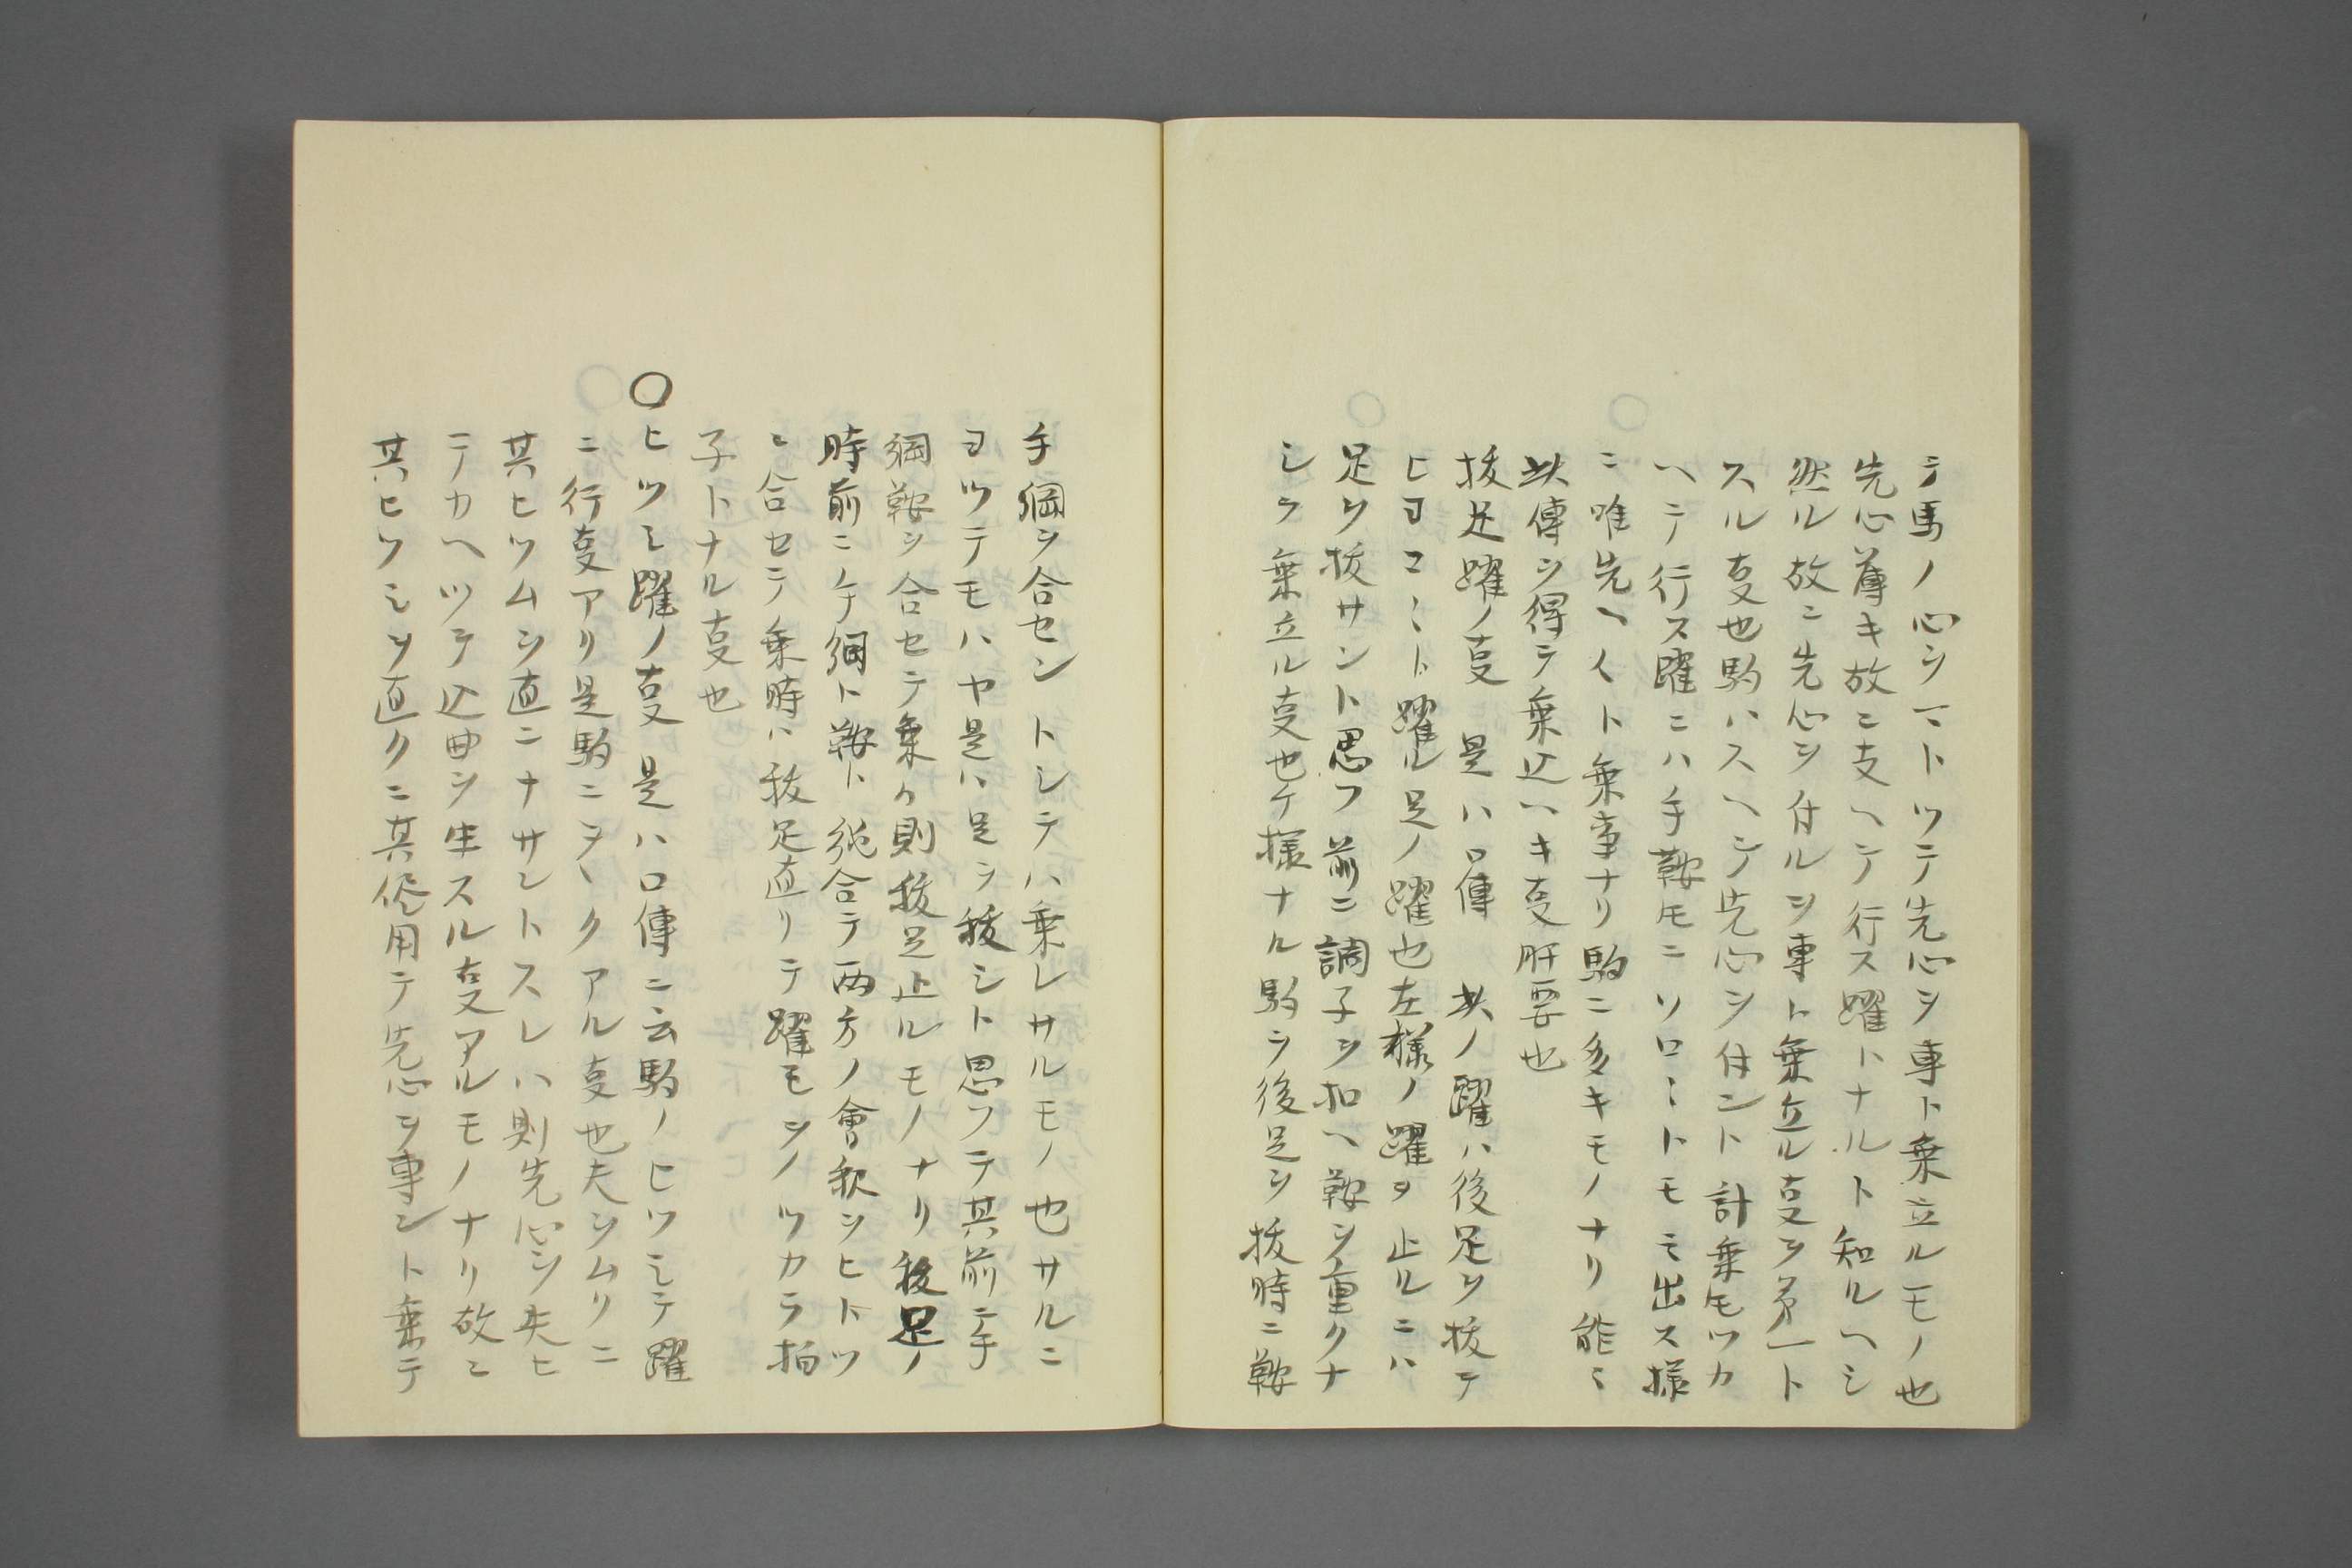 テ馬ノ心ヲ一ニトツテ先心ヲ専ト乗立ルモノ也
先心薄キ故ニ支ヘテ行ス躍トナルト知ルヘシ
然ル故ニ先心ヲ付ルヲ専ト乗立ル叓ヲ第一ト
スル叓也駒ハスヘテ先心ヲ付ント計乗モツカ
ヘテ行ス躍ニハ手鞍モニソロ〳〵トモミ出ス様
ニ唯先ヘ〳〵ト乗事ナリ駒ニ多キモノナリ能〻
此傳ヲ得テ乗込ヘキ叓肝要也
抜足躍ノ叓 是ハ口傳 此ノ躍ハ後足ヲ抜テ
ヒヨコ〳〵ト躍ル足ノ躍也左様ノ躍ヲ止ルニハ
足ヲ抜サント思フ前ニ調子ヲ扣ヘ鞍ヲ重クナ
シテ乗立ル叓也ケ様ナル駒ラ後足ヲ抜時ニ鞍
手綱ヲ合セントシテハ乗レサルモノ也サルニ
ヨツテモハヤ是ハ足ヲ抜シト思フテ其前ニ手
綱鞍ヲ合セテ乗カ則抜足止ルモノナリ後足ノ
時前ニ手綱ト鞍ト
ニ合セテ乗時ハ抜足直リテ躍モヲノツカラ拍
子トナル叓也
〇ヒツミ躍ノ叓 是ハ口傳ニ云駒ノヒツミテ躍
ニ行叓アリ是駒ニヲヽクアル叓也夫ヲムリニ
其ヒツムヲ直ニナサントスレハ則先心ヲ失ヒ
テカヘツテ込曲ヲ生スル叓アルモノナリ故ニ
其ヒツミヲ直クニ其侭用テ先心ヲ事ント乗テ